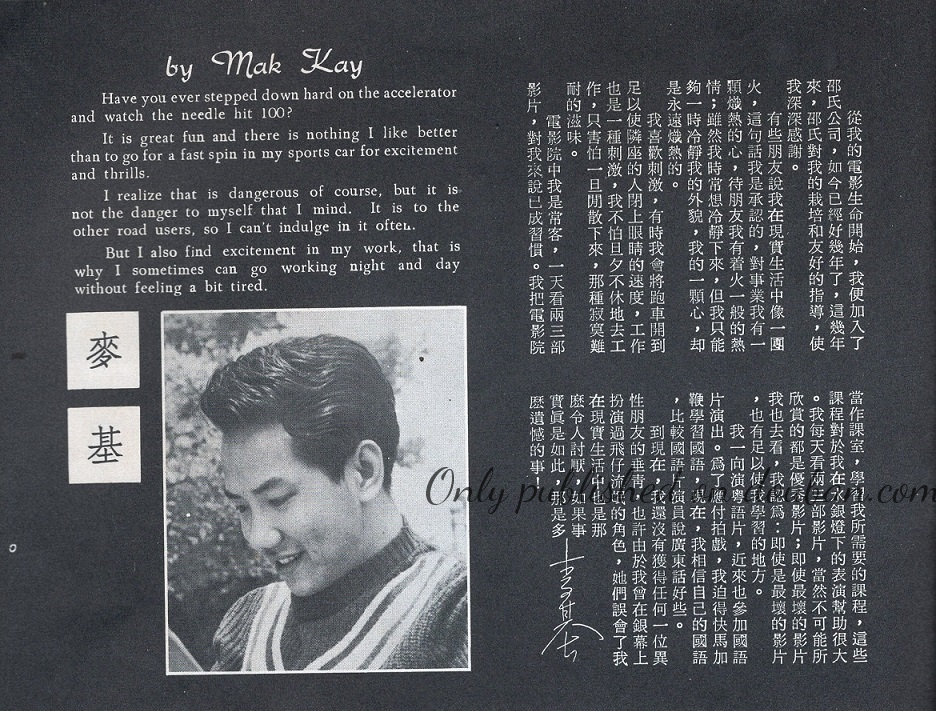 by Mak Kay
Have you ever stepped down hard on the accelerator
and watch the needle hit 100?
It is great fun and there is nothing I like better
than to go for a fast spin in my sports car for excitement
and thrills.
I realize that is dangerous of course, but it is
not the danger to myself that I mind. It is to the
other road users, so I can't indulge in it often.
But I also find excitement in my work, that is
why I sometimes can go working night and day
without feeling a bit tired.
麥
基
從我的電影生命開始，我便加入了
邵氏公司，如今已經好幾年了，這幾年
來，邵氏對我的栽培和友好的指導，使
我深深感謝。
有些朋友說我在現實生活中像一團
火，這句話我是承認的，對事業我有一
顆熾熱的心，待朋友我有着火一般的熱
情；雖然我時常想冷靜下來，但我只能
夠一時冷靜我的外貌，我的一顆心，却
是永遠熾熱的。
我喜歡刺激，有時我會將跑車開到
足以使隣座的人閉上眼睛的速度，工作
也是一種刺激，我不怕旦夕不休地去工
作，只害怕一旦閒散下來，那種寂寞難
耐的滋味。
電影院中我是常客，一天看兩三部
影片，對我來說已成習慣。我把電影院
當作課室，學習我所需要的課程，這些
課程對於我在水銀燈下的表演幫助很大
。我每天看兩三部影片，當然不可能所
欣賞的都是優秀影片；即使最壞的影片
我也去看，我認爲：即使是最壞的影片
，也有足以使我學習的地方。
我一向演粤語片，近來也參加國語
片演出。爲了應付拍戲，我迫得快馬加
鞭學習國語，現在，我相信自己的國語
，比較國語演員說廣東話好些。
到現在，我還沒有獲得任何一位異
性朋友的垂青，也許由於我曾在銀幕上
扮演過飛仔型的角色，她們誤會了我
在現實生活中也是那
麽令人討厭，如果事
實眞是如此，那是多
麽遺憾的事！
麥基
Only published on